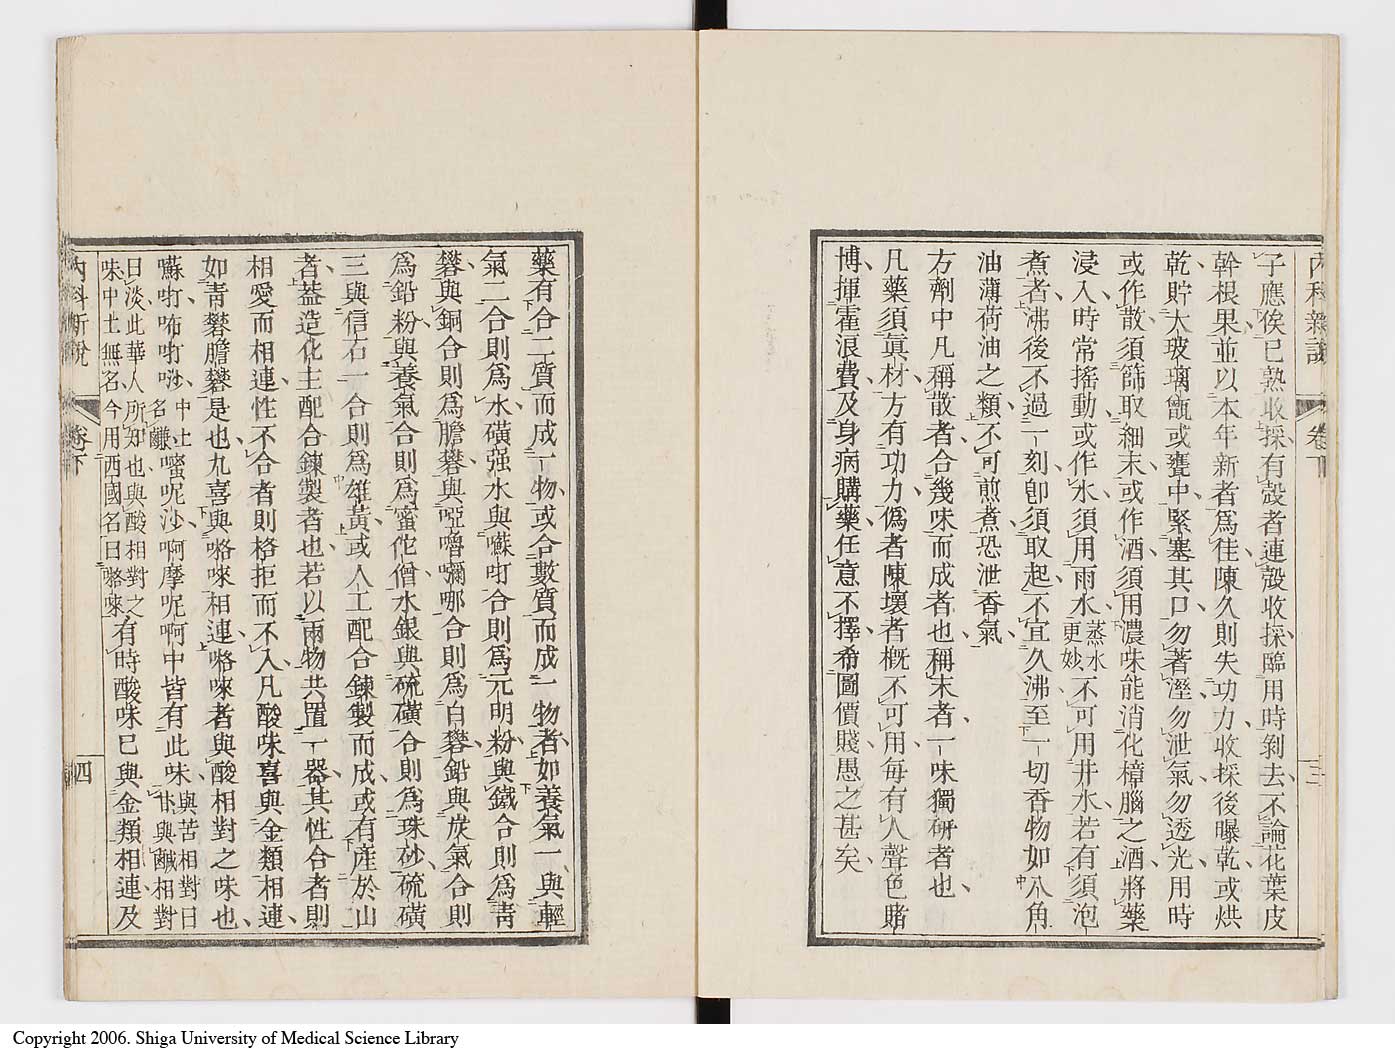 子應俟已熟收採有殼者連殼收採臨用時剝去不論花葉皮
幹根果並以本年新者爲佳陳久則失功力收採後曝乾或烘
乾貯大玻璃甑或甕中緊塞其口勿著溼勿泄氣勿透光用時
或作散須篩取細末或作酒須用濃味能消化樟腦之酒將藥
浸入時常搖動或作水須用雨水蒸水更妙不可用井水若有須泡
煮者沸後不過一刻卽須取起不宜久沸至一切香物如八角
油薄荷油之類不可煎煮恐泄香氣
右劑中凡稱散者合幾味而成者也稱末者一味獨研者也
凡藥須眞材方有功力僞者陳壞者槪不可用每有人聲色賭
博揮霍浪費及身病購藥任意不擇希圖價賤愚之甚矣
藥有合二質而成一物或合數質而成一物者如養氣一與輕
氣二合則爲水磺强水與囌叮合則爲元明粉與鐵合則爲靑
礬與銅合則爲膽礬與啞嚕嘞哪合則爲白礬鉛與炭氣合則
爲鉛粉與養氣合則爲蜜佗僧水銀與硫磺合則爲珠砂硫磺
三與信石一合則爲雄黃或人工配合鍊製而成或有產於山
者蓋造化主配合鍊製者也若以兩物共置一器其性合者則
相愛而相連性不合者則格拒而不入凡酸味喜與金類相連
如靑礬膽礬是也九喜與咯唻相連咯唻者與酸相對之味也
囌叮咘叮唦中土名鹻嘧呢沙啊摩呢啊中皆有此味與苦相對曰甘與鹹相對
曰淡此華人所知也與酸相對之味中土無名今用西國名曰咯唻有時酸味已與金類相連及
內科新說 卷下 四
卷下 三
Copyright 2006. Shiga University of Medical Science Library